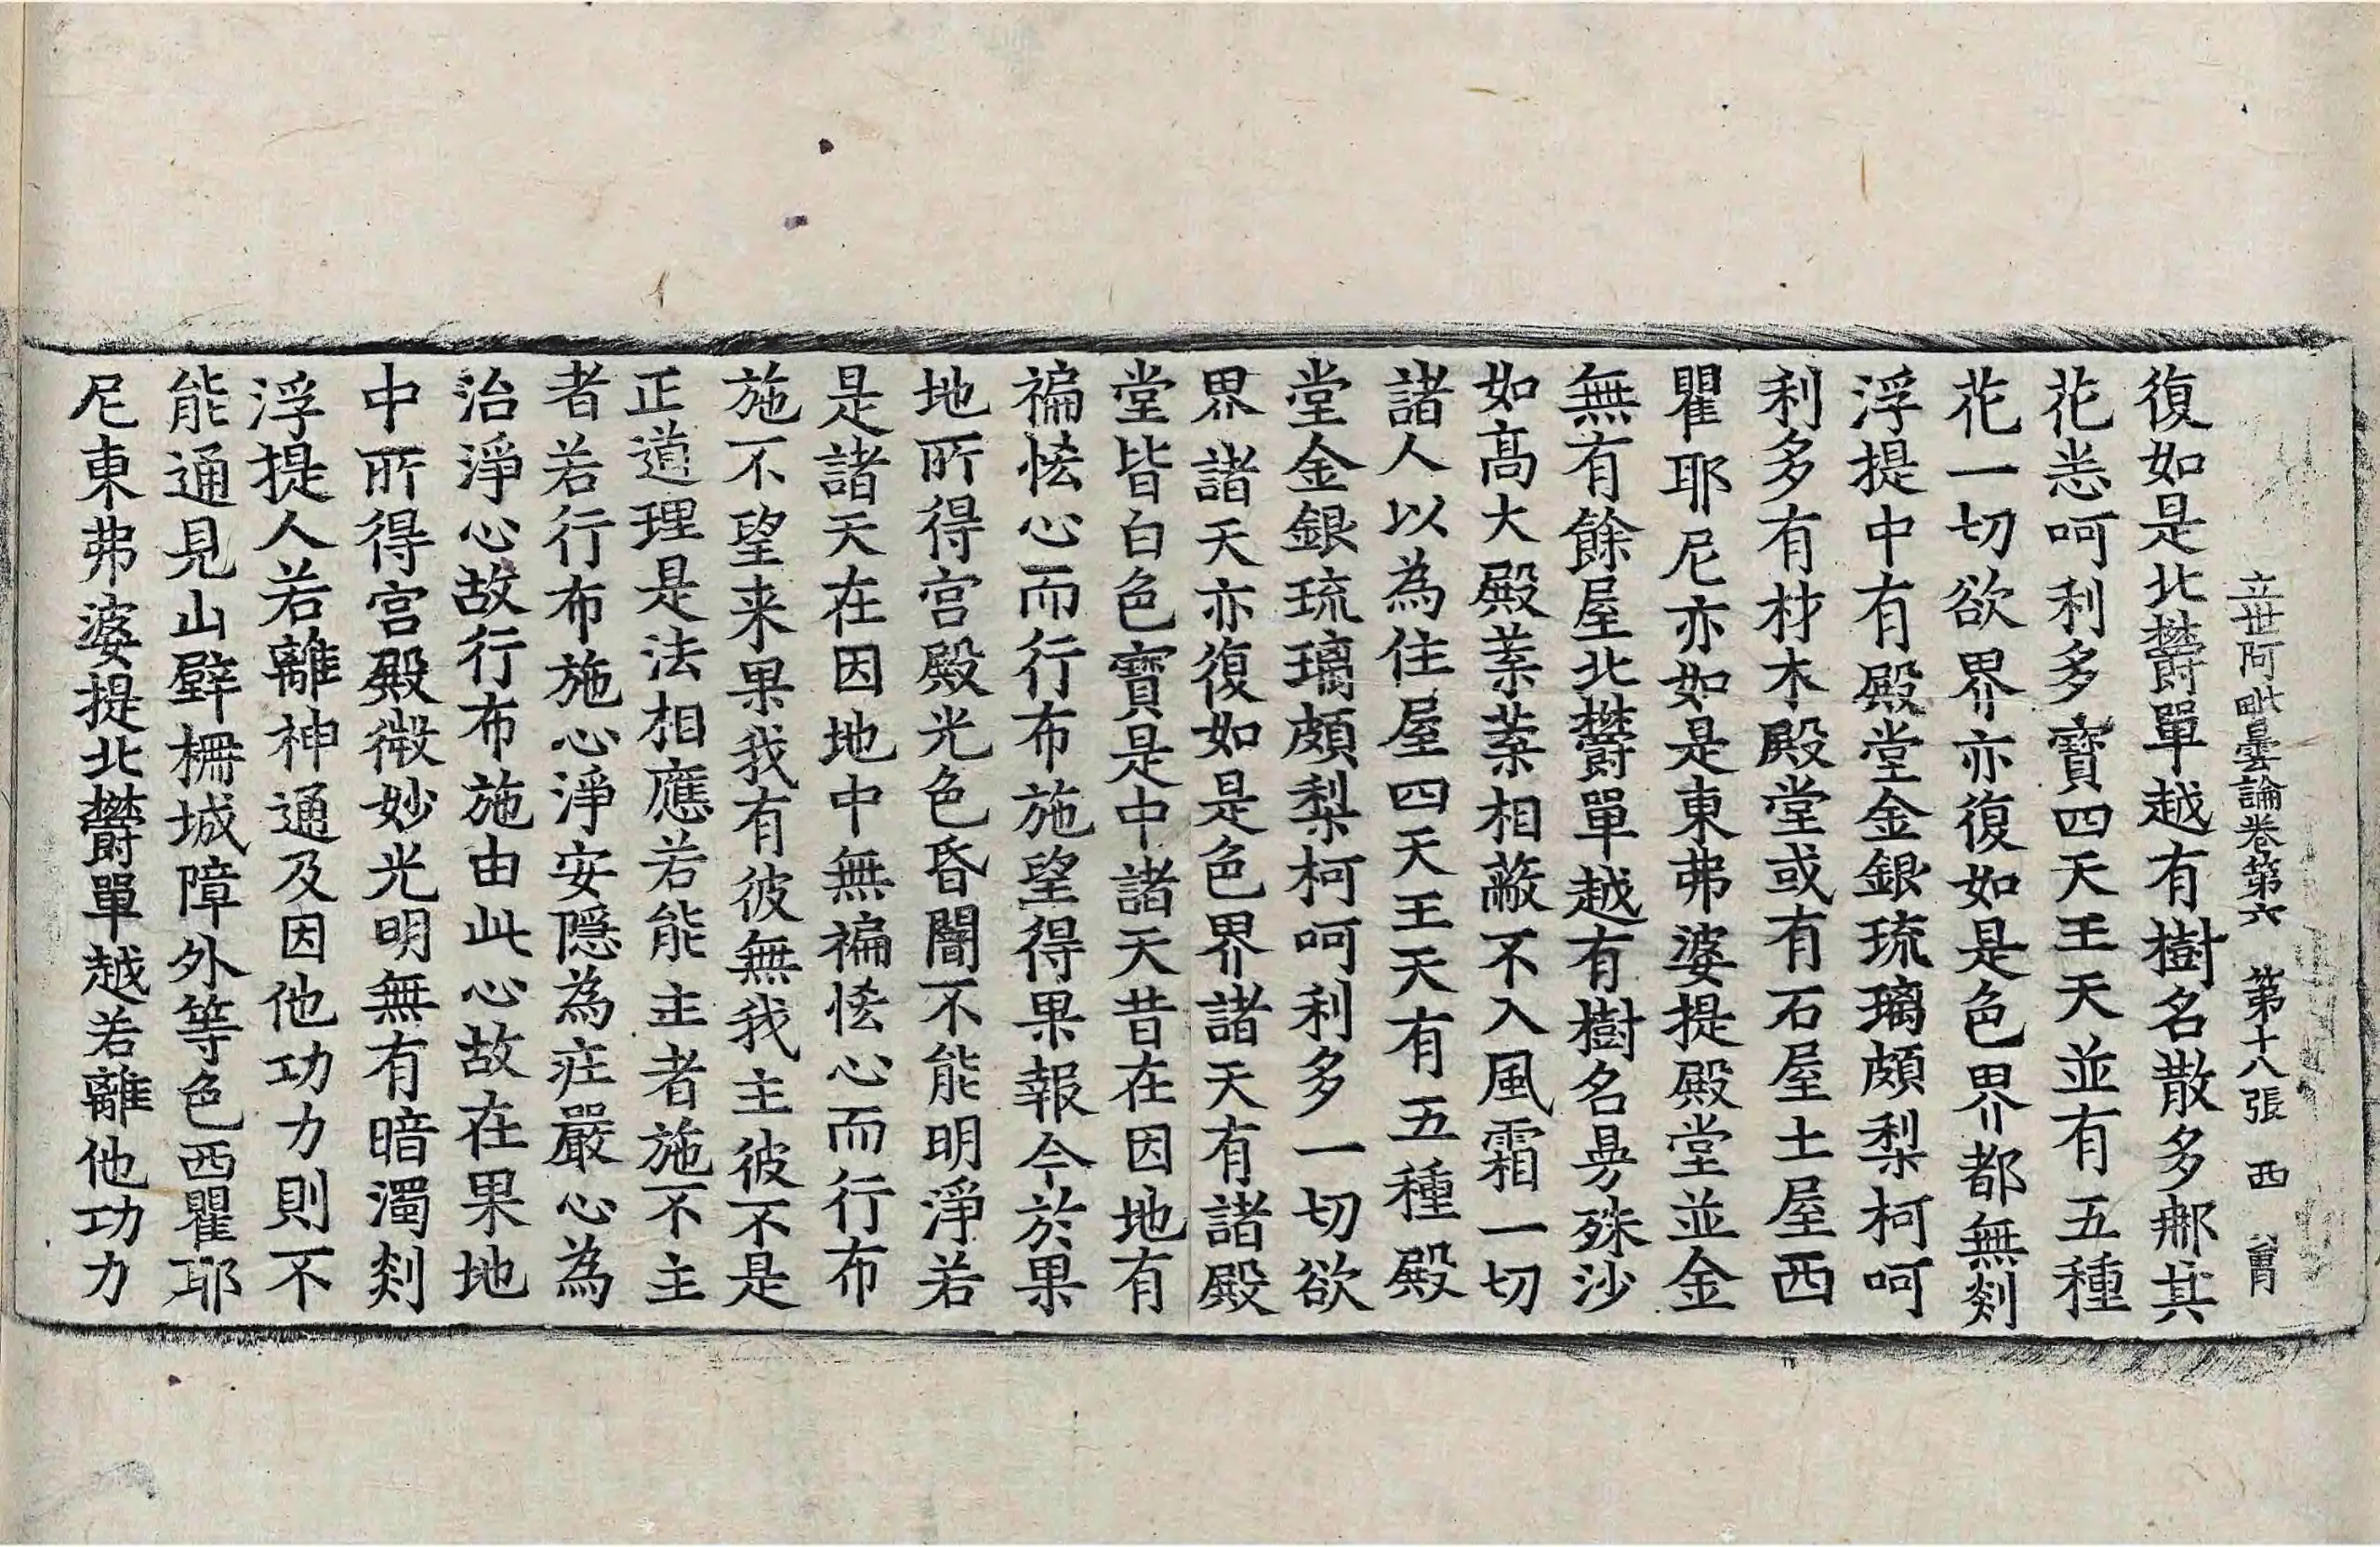 立世阿毗曇論卷第六　第十八張　西
復如是北欝單越有樹名散多那其
花恙呵利多寶四天王天並有五種
花一切欲界亦復如是色界都無剡
浮提中有殿堂金銀琉璃頗梨柯呵
利多有材木殿堂或有石屋土屋西
瞿耶尼亦如是東弗婆提殿堂並金
無有餘屋北欝單越有樹名㝵殊沙
如高大殿葉葉相蔽不入風霜一切
諸人以為住屋四天王天有五種殿
堂金銀琉璃頗梨柯呵利多一切欲
界諸天亦復如是色界諸天有諸殿
堂皆白色寶是中諸天昔在因地有
褊悋心而行布施望得果報今於果
地所得宮殿光色昏闇不能明淨若
是諸天在因地中無褊悋心而行布
施不望来果我有彼無我主彼不是
正道理是法相應若能主者施不主
者若行布施心淨安隱為莊嚴心為
治淨心故行布施由此心故在果地
中所得宮殿微妙光明無有暗濁剡
浮提人若離神通及因他功力則不
能通見山壁柵城障外等色西瞿耶
尼東弗婆提北欝單越若離他功力